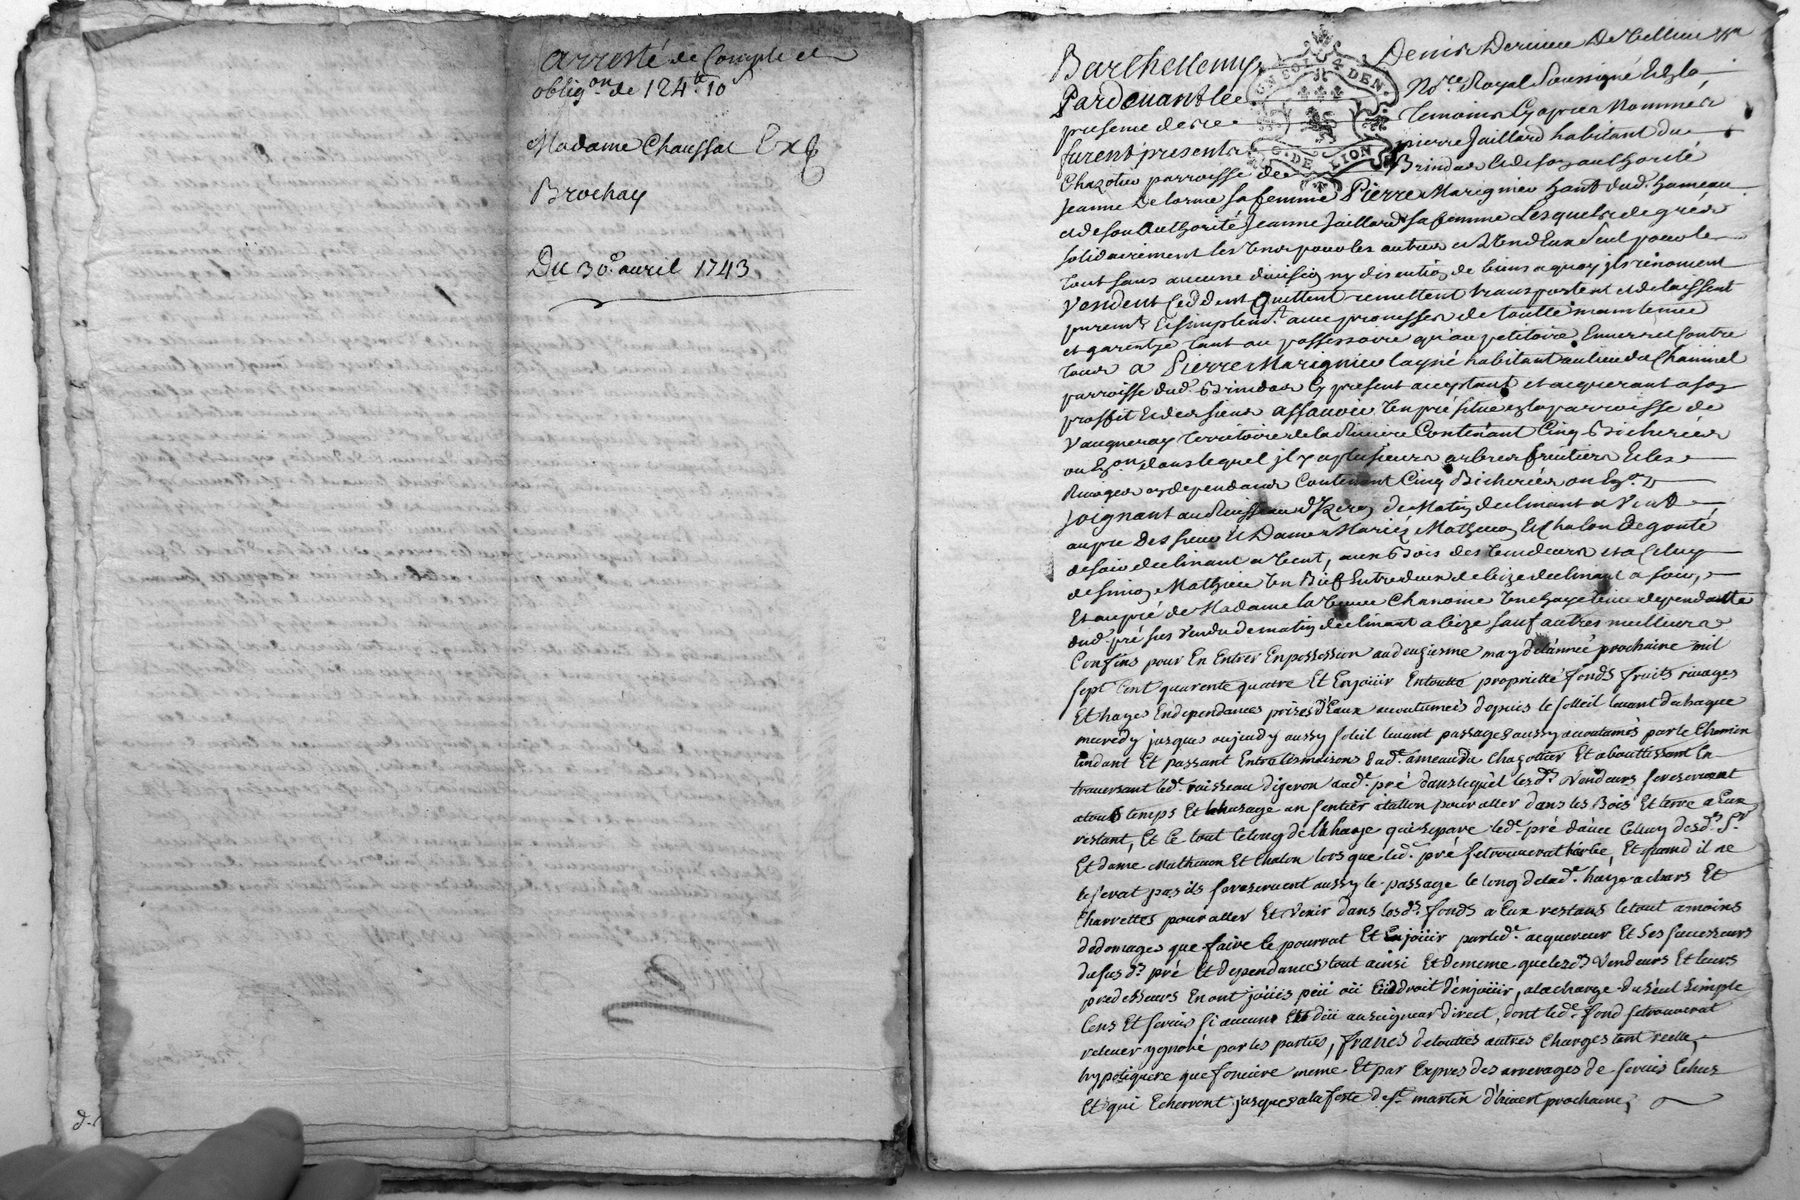 arresté de Compte et
oblig.on de 124.tt 10 s
Madame Chaussat Exp
Brochay
Du 30.e auril 1743
d.
GN SOL 4 DEN.
G. DE LION
Barthellemy Denis Dervieu De Vellieu
Pardeuant le No.re Royal Soussigné Et En la
presence des Temoins Cy apres Nommés
furent presents pierre Jaillard habitant du
Chazotier parroisse de Brindas Et de son authorité
Jeanne Delorme sa femme Pierre Marignieu hant dud. hameau
et de son Authorité Jeanne Jaillard sa femme Lesquels de gré
solidairement les Vns pour les autres et Vn d'Eux seul pour le
tout sans aucune diuision ny discution de biens a quoy ils renoncent
Vendent Ceddent Quittent remettent transportent et delaissent
purem.t Et simplem.t auec promesses de toutte maintenue
et garentye tant au possessoire qu'au petitoire Enuers et Contre
tous a Pierre Marignieu layné habitant au lieu du Chainnel
parroisse dud. Brindas Cy present acceptant et acquerant a son
proffit Et des siens assauoir Vn pré situé En la parroisse de
Vaugneray territoire de la Riuiere Contenant Cinq Bicherées
ou En.on dans lequel il y a plusieurs arbres fruitiers Et les
Riuages en dependants Contenant Cinq Bicherées ou En.on
Joignant au Ruisseau d'Yzeron de Matin declinant a Vent
au pré des sieur Et Dame Mariés Mathieu Et Chalon de
de soir declinant a Vent, aux Bois des Vendeurs et a Celuy
de simon Mathieu Vn Bief Entre deux de bize declinant a soir,
Et au pré de Madame la Chanoine Vne haye Viue dependante
dud. pré sus Vendu de matin declinant a bize sauf autres meilleurs
Confins pour En Entrer En possession au deuxiesme may de lannée prochaine mil
sept Cent quarente quatre Et En joüir En toutte proprietté fonds fruits riuages
Et hayes En dependances prises d'Eaux accoutumées depuis le solleil leuant du chaque
mercredy jusques au jeudy aussy soleil leuant passages aussy accoutumés par le Chemin
tendant Et passant Entre les maisons dud.e ameau du Chazottier Et abouttissant En
trauersant led.e ruisseau dizeron aud.e pré dans lequel les d.s Vendeurs se reseruent
a tous temps Et usage un sentier a tallon pour aller dans les Bois Et terre a Eux
restant, Et Ce tout le long de la haye qui separe led.e pré dauec Celluy desd.s S.r
Et dame Mathieu Et Chalon lors que led.e pré se trouuerat herbé, Et quand il ne
le serat pas ils se reseruent aussy le passage le long de lad.e haye a chars Et
Charrettes pour aller Et Venir dans les d.s fonds a Eux restans le tout a moins
de domages que faire se pourrat Et En joüir par led.e acquereur Et Ses successeurs
du sus d.t pré Et dependances tout ainsi Et de meme que lesd.s Vendeurs Et leurs
predesseurs En ont joüis peü oü Eü droit d'En joüir, a la charge du seul Simple
Cens Et seruis si aucun Est dü au seigneur direct, dont led.e fond se trouuerat
releuer ygnoré par les parties, francs de touttes autres Charges tant reelle
hypotiquere que fonciere meme Et par Expres des arrerages de seruis Echus
Et qui Echerront jusques a la feste de s.t martin d'hiuert prochaine;